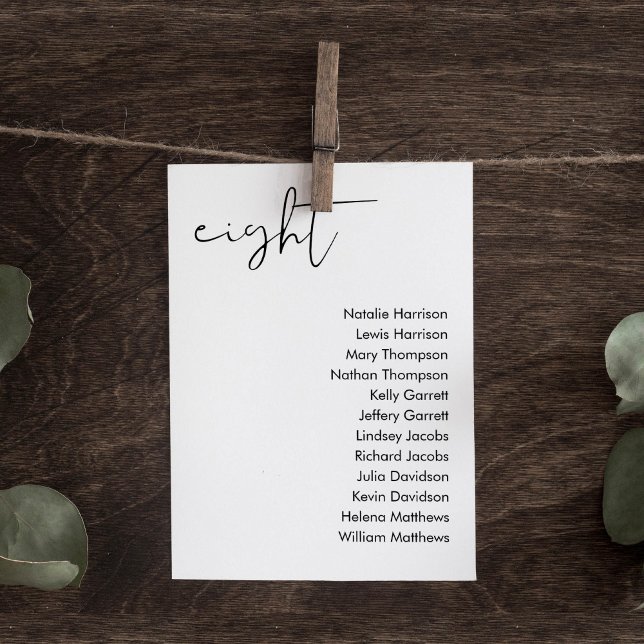 eight
Natalie Harrison
Lewis Harrison
Mary Thompson
Nathan Thompson
Kelly Garrett
Jeffery Garrett
Lindsey Jacobs
Richard Jacobs
Julia Davidson
Kevin Davidson
Helena Matthews
William Matthews